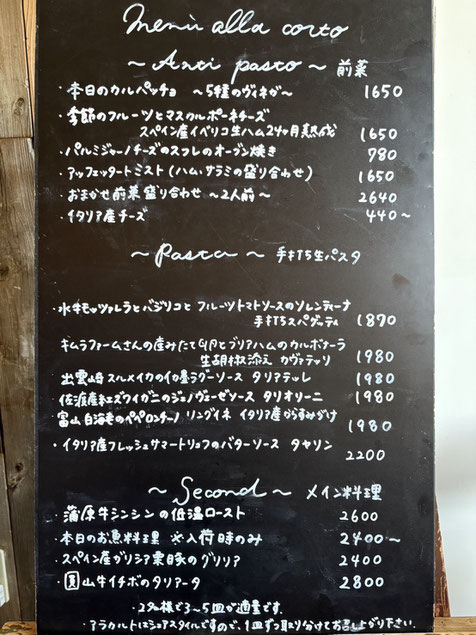 Menù alla corto
～Anti pasto～ 前菜
・本日のカルパッチョ ～5種のヴィネガ～ 1650
・季節のフルーツとマスカルポーネチーズ
スペイン産イベリコ生ハム24ヶ月熟成 1650
・パルミジャーノチーズのスフレのオーブン焼き 780
・アッフェッタートミスト(ハム・サラミの盛り合わせ) 1650
・おまかせ前菜盛り合わせ～2人前～ 2640
・イタリア産チーズ 440～
～Pasta～ 手打ち生パスタ
・水牛モッツァレラとバジリコと フルーツトマトソースのソレンティーナ
手打ちスパゲッティ 1870
キムラファームさんの産みたて卵とプリアハムのカルボナーラ
生胡椒添え カヴァテッリ 1980
出雲崎スルメイカのイカ墨ラグーソース タリアテッレ 1980
佐渡産紅ズワイガニのジェノヴェーゼソース タリオリーニ 1980
富山白海老のペペロンチーノ リングイネ イタリア産からすみがけ
1980
・イタリア産フレッシュサマートリュフのバターソース タヤリン
2200
～Second～ メイン料理
・蒲原牛シンシンの低温ロースト 2600
・本日のお魚料理 ※入荷時のみ 2400～
・スペイン産ガリシア栗豚のグリリア 2400
・山牛イチボのタリアータ 2800
・2名様で3～5皿が適量です.
・アラカルトはシェアスタイルですので、1皿ずつ取り分けてお召し上がり下さい.